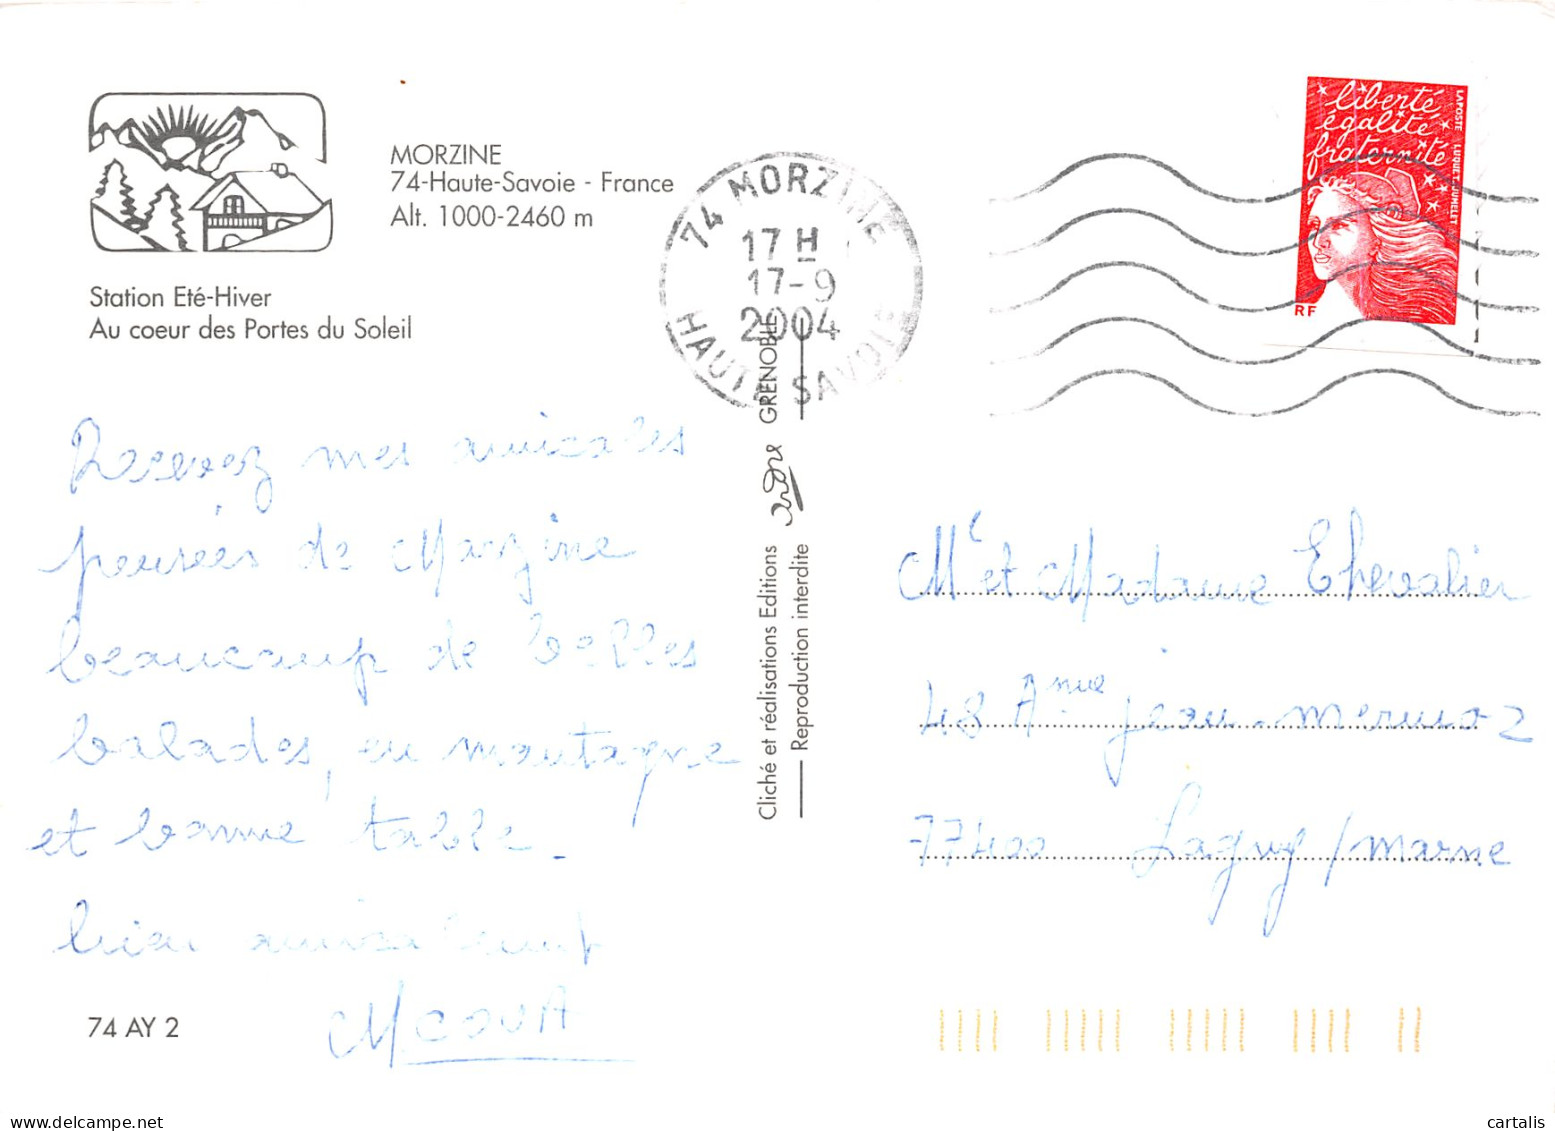 MORZINE
74-Haute-Savoie - France
Alt. 1000-2460 m
Station Eté-Hiver
Au coeur des Portes du Soleil
74 MORZINE
17 H
17-9
2004
HAUTE SAVOIE
liberté
égalité
fraternité
RF
LA POSTE
Recevez mes amicales
pensées de Morzine
beaucoup de belles
balades, en montagne
et bonne table.
bien amicalement
74 AY 2
Cliché et réalisations Editions André GRENOBLE
Reproduction interdite
Mr et Madame Chevalier
48 Anue jean-mermoz
77400 Lagny/marne
cartalis
www.delcampe.net